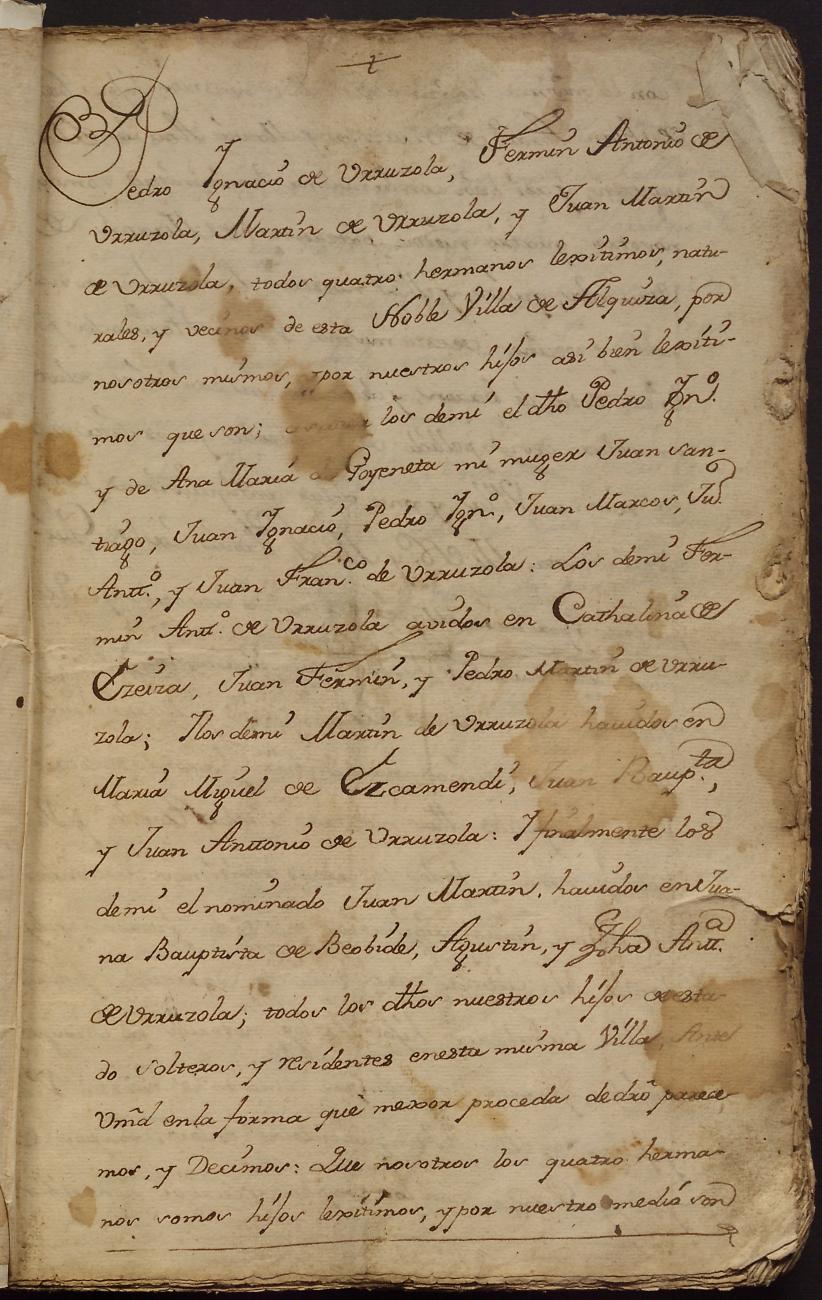 Pedro Ignacio de Urruzola, Fermin Antonio de
Urruzola, Martin de Urruzola, y Juan Martin
de Urruzola, todos quatro hermanos lexitimos, natu-
rales, y vecinos de esta Noble Villa de Alquiza, por
nosotros mismos, y por nuestros hijos asi bien lexiti-
mos que son; los demi el dho Pedro Ign.º
y de Ana Maria de Goyeneta mi muger Juan San-
tiago, Juan Ignacio, Pedro Ign.º, Juan Marcos, Ju.º
Antt.º, y Juan Fran.co de Urruzola: Los demi Fer-
min Antt.º de Urruzola avidos en Cathalina de
Ezeiza, Juan Fermin, y Pedro Martin de Urru-
zola; Ylos demi Martin de Urruzola havidos en
Maria Miguel de Ezcamendi, Juan Baup.ta,
y Juan Anttonio de Urruzola: Y finalmente los
demi el nominado Juan Martin, havidos en Jua-
na Bauptista de Beobide, Agustin, y Antt.ª
de Urruzola; todos los dhos nuestros hijos de esta-
do solteros, y residentes enesta misma Villa, Ante
Vmd enla forma que mexor proceda dedro parece
mos, y Decimos: Que nosotros los quatro herma-
nos somos hijos lexitimos, y por nuestro medio son